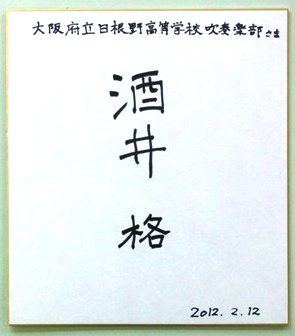 大阪府立日根野高等学校吹奏楽部さま
酒井
格
2012.2.12